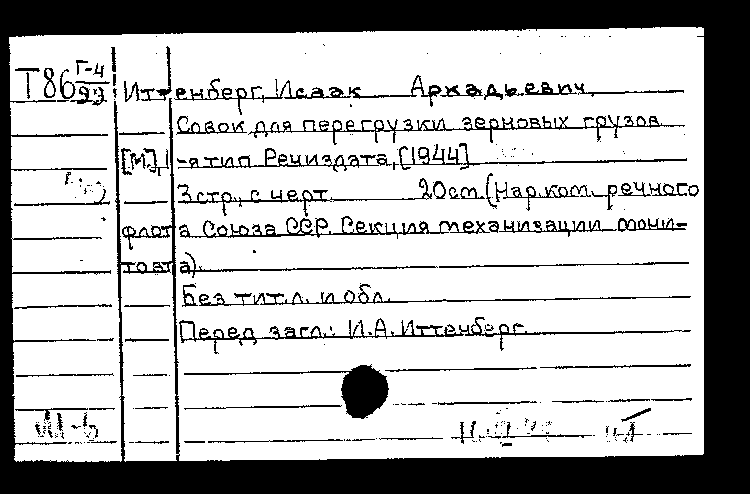 Т86 Г-4/93 Иттенберг, Исаак Аркадьевич.
Совок для перегрузки зерновых грузов
[М.], 1-я тип Речиздата, [1944]
3 стр., с черт. 20 см. (Нар. ком. речного
флота Союза ССР. Секция механизации
). 
Без тит. л. и обл.
Перед загл.: И.А. Иттенберг.